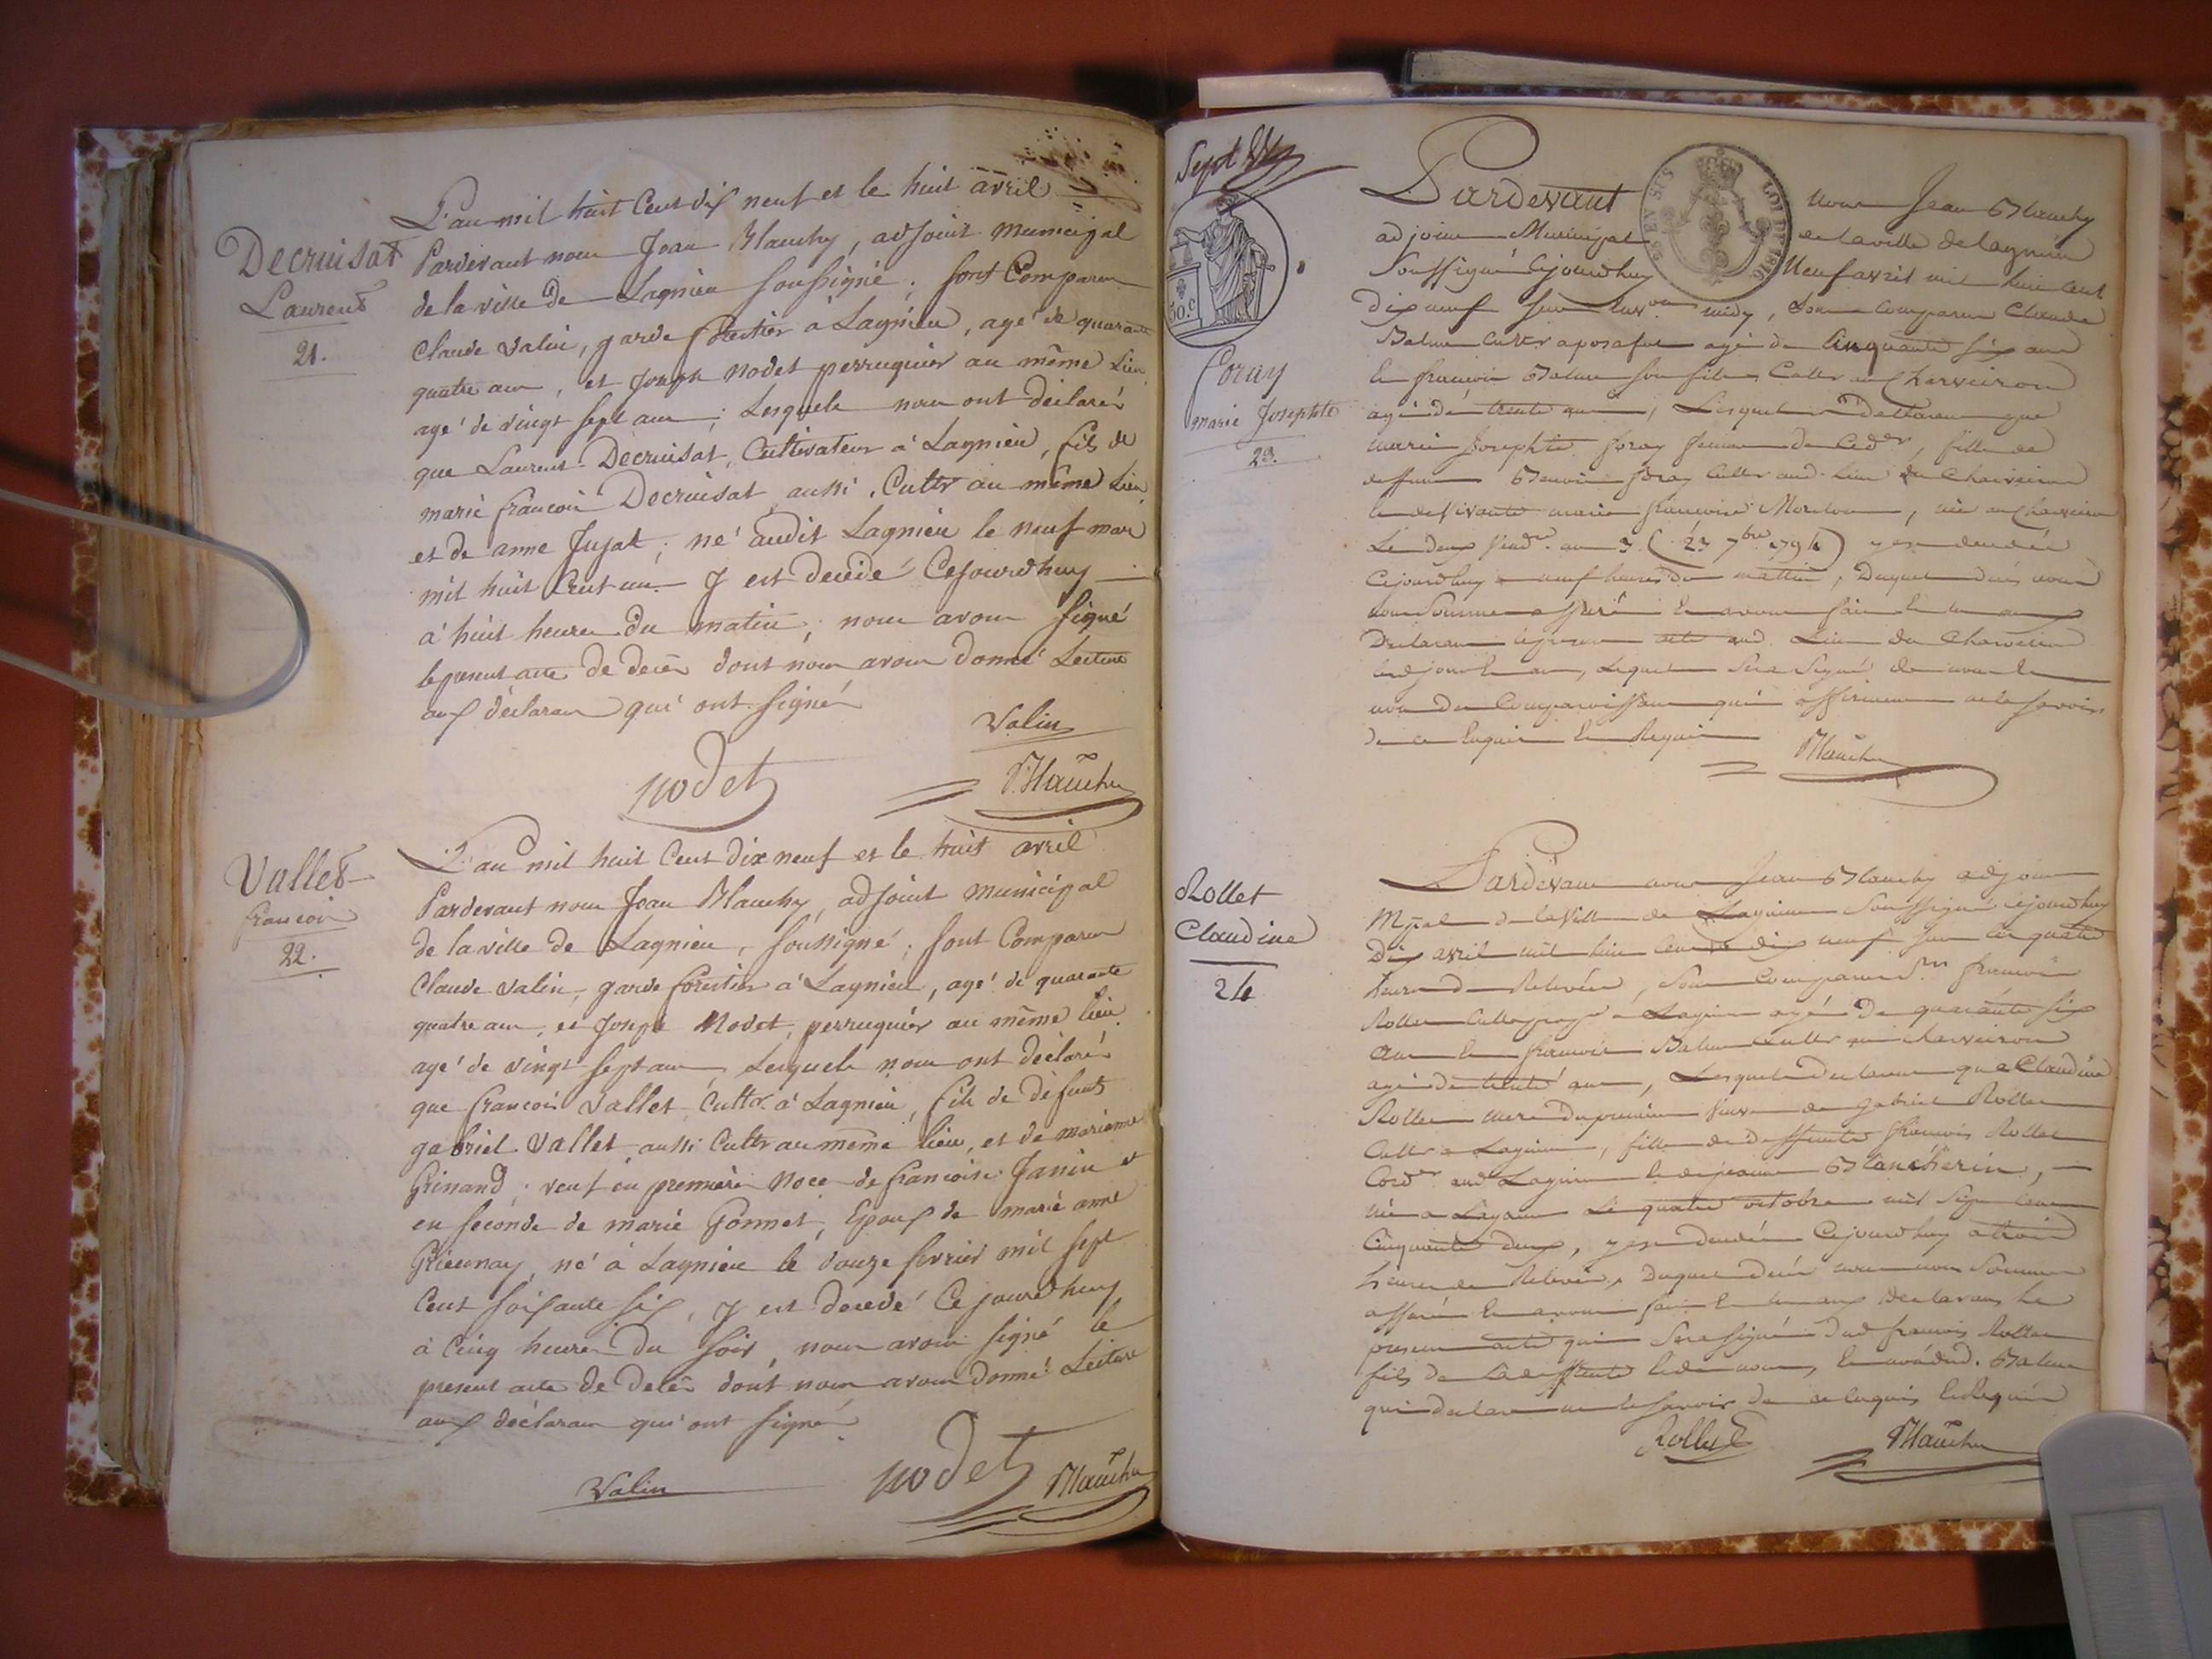 Decruisat
Laurent
21.
L'an mil huit Cent dix neuf et le huit avril
Pardevant nous Jean Blanchy, adjoint municipal
de la ville de Lagnieu soussigné, sont Comparus
Claude Valin, garde forestier a Lagnieu, agé de quarante
quatre ans, et Joseph Nodet perruquier au même Lieu
agé de vingt sept ans; Lesquels nous ont déclaré
que Laurent Decruisat, Cultivateur à Lagnieu, fils de
marie francois Decruisat aussi Cultr au même Lieu
et de anne Jujat; né audit Lagnieu le neuf mars
mil huit Cent un. Y est decédé Cejourdhuy
à huit heures du matin, nous avons signé
le present acte de decès dont nous avons donné Lecture
aux déclarans qui ont signé
Valin
nodet
Blanchy
Vallet
francois
22.
L'an mil huit Cent dix neuf et le huit avril
Pardevant nous Jean Blanchy, adjoint municipal
de la ville de Lagnieu, soussigné; sont Comparus
Claude Valin, garde forestier à Lagnieu, agé de quarante
quatre ans, et Joseph Nodet, perruquier au même lieu
agé de vingt sept ans, Lesquels nous ont déclaré
que francois Vallet Cultr. à Lagnieu, fils de défunts
gabriel Vallet aussi Cultr au même lieu, et de marianne
Grinand; veuf en première Noce de francoise Janin et
en seconde de marie Gonnet, Epoux de marie anne
né à Lagnieu le douze fevrier mil sept
Cent soixante six, y est decedé Ce jourdhuy
à Cinq heures du soir, nous avons signé le
present acte de decès dont nous avons donné Lecture
aux déclarans qui ont signé
Valin
nodet
Blanchy
Sept
50. c
Foray
marie Josephte
23.
25 EN SUS
Pardevant nous Jean Blanchy
adjoint Municipal de la ville de lagnieu
Soussigné Cejourdhuy Neuf avril mil huit cent
dix neuf sur les midy, sont comparus Claude
Balme Cultr a posafol agé de Cinquante six ans
Et francois Balme son fils Cultr au Charveiron
agé de trente ans, Lesquels déclarent que
marie Josephte foray femme de Ced.er, fille de
deffunt Benoit foray Cultr aud. Lieu du Charveiron
et de Vivante marie francoise, née au Charveiron
Le deux Vendre. an 3. (23 7bre 1794) y est decedée
Cejourdhuy a neuf heures du matin, Duquel decès nous
nous sommes assuré Et avons fait Et lu aux
Declarans le present acte aud. Lieu du Charveiron
lesd jour Et an, Lequel sera Signé de nous Et
non des Comparoissans qui affirment ne le savoir
de ce Enquis Et Requis
Blanchy
Rollet
Claudine
24
Pardevant nous Jean Blanchy adjoint
Mpal de la Ville de Lagnieu Soussigné cejourdhuy
Dix avril mil huit Cent dix neuf sur les quatre
heures de Relevée, Sont Comparus Sr. francois
Rollet a Lagnieu agé de quarante six
ans Et francois Balme Cultr au charveiron
agé de trente ans, Lesquels declarent que Claudine
Rollet mere du premier Veuve de gabriel Rollet
Cultr a Lagnieu, fille de deffunts francois Rollet
Cord.er aud Lagnieu Et de jeanne Blancherin,
née a Lagnieu Le quatre octobre mil Sept Cent
Cinquante deux, y est decedée Cejourdhuy a trois
heures de Relevée, Duquel decès nous nous Sommes
assuré Et avons fait Et lu aux declarans Le
present acte qui Sera signé dud francois Rollet
fils de La deffunte Et de nous, Et non dud. Balme
qui declare ne le Savoir de ce Enquis Et Requis
Rollet
Blanchy